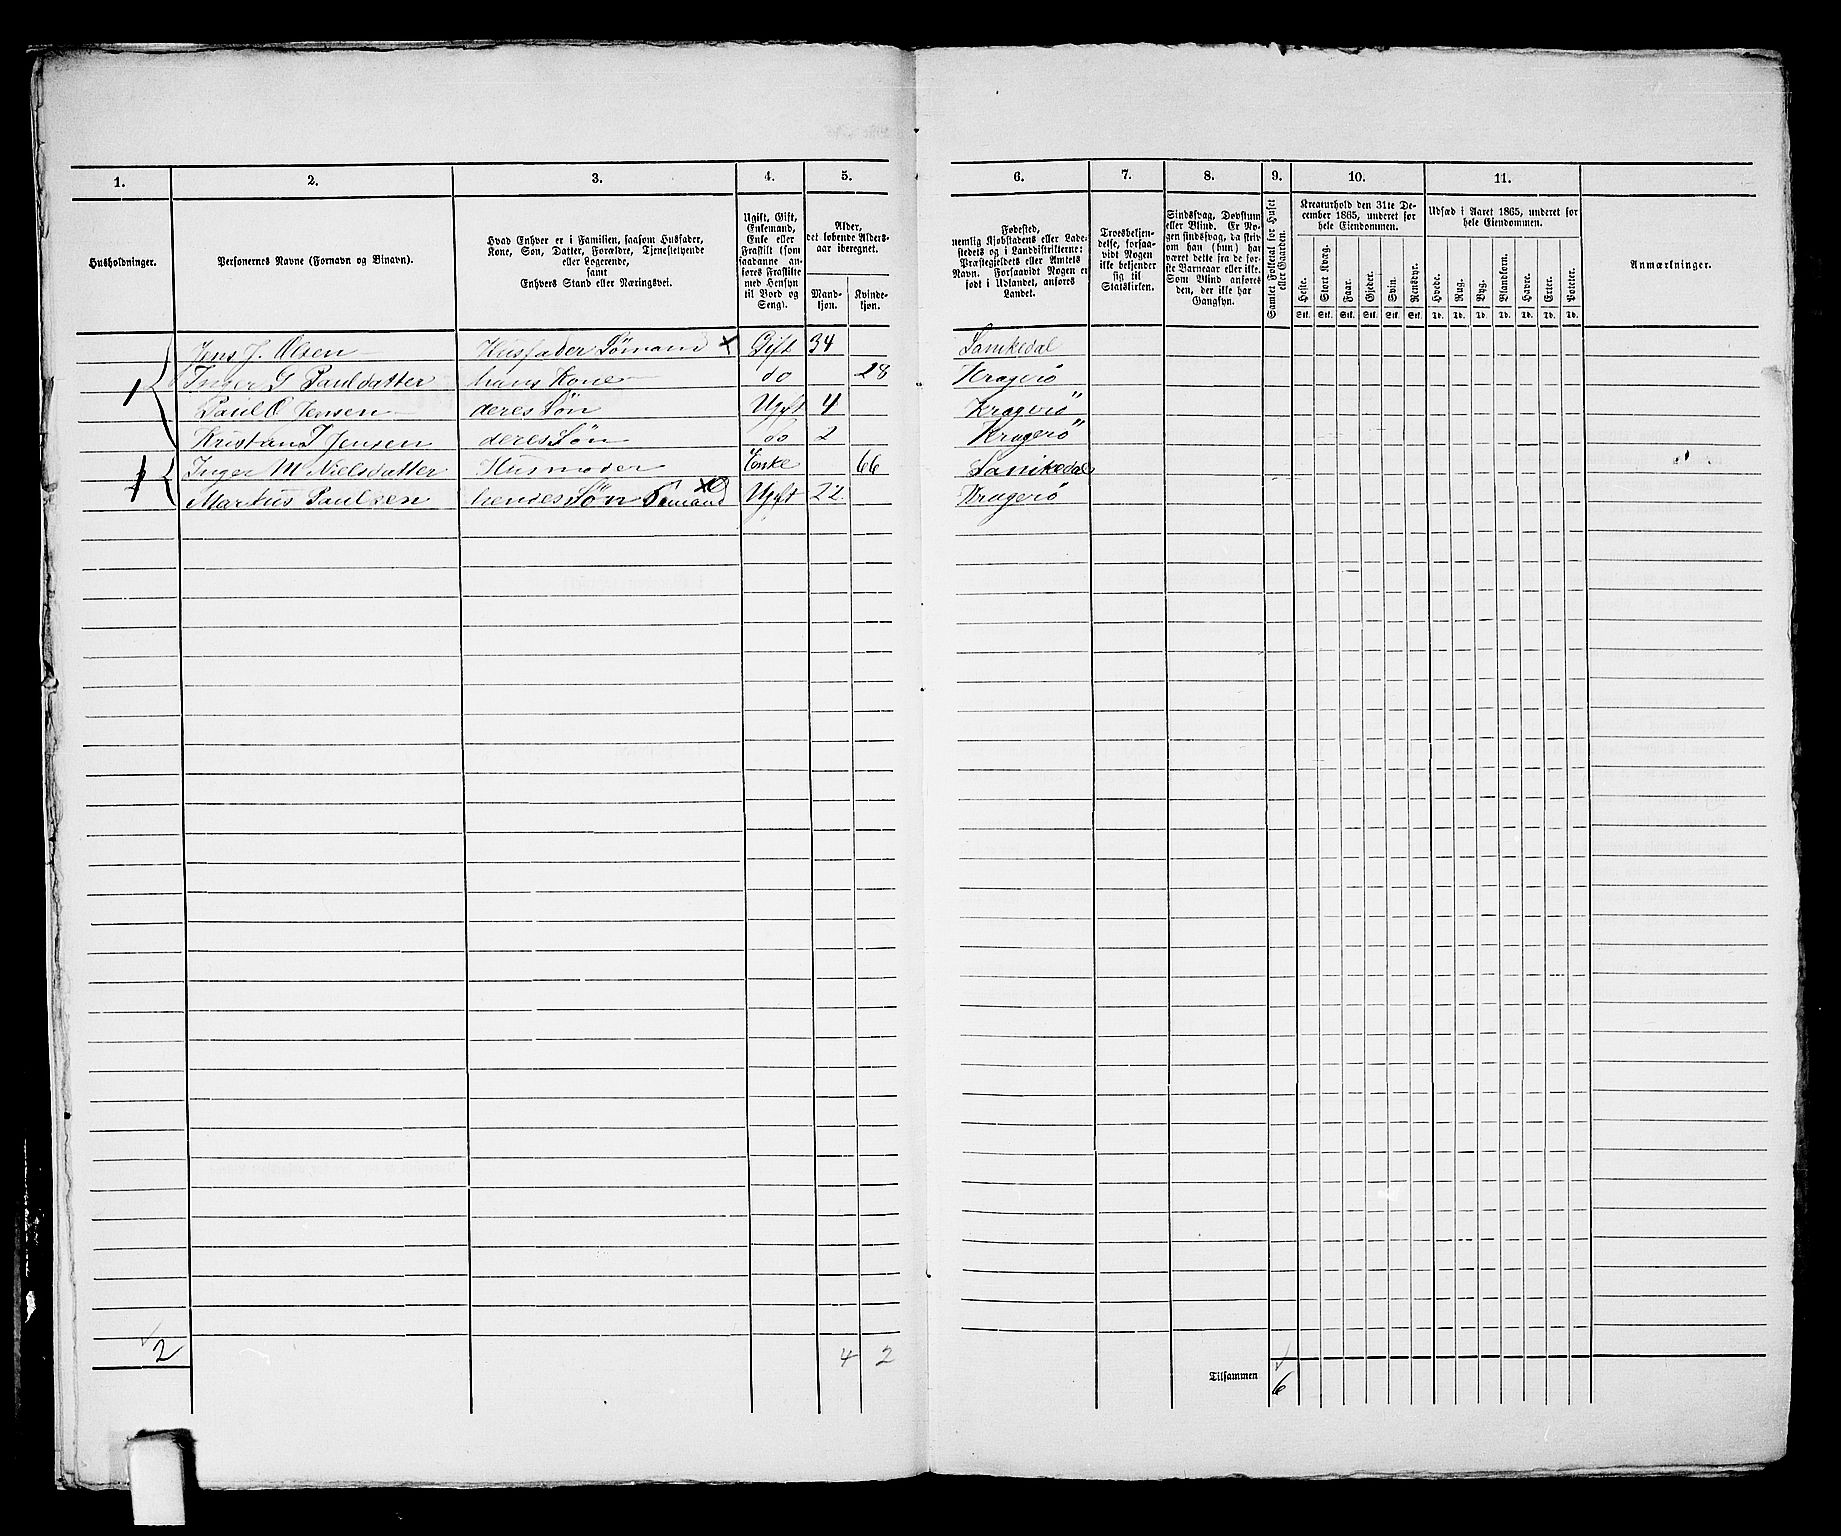 1. 2. 3. 4. 5. 6. 7. 8. 9. 10. 11.
Husholdninger.
Personernes Navne (Fornavn og Binavn).
Hvad Enhver er i Familien, saasom Husfader,
Kone, Søn, Datter, Forældre, Tjenestetyende
eller Logerende,
samt
Enhvers Stand eller Næringsvei.
Ugift, Gift,
Enkemand,
Enke eller
Fraskilt (som
saadanne an-
føres Fraskilte
med Hensyn
til Bord og
Seng).
Alder,
det løbende Alders-
aar iberegnet.
Mand-
kjøn.
Kvinde-
kjøn.
Fødested,
nemlig Kjøbstadens eller Lade-
stedets og i Landdistrikterne:
Præstegjeldets eller Amtets
Navn. Forsaavidt Nogen er
født i Udlandet, anføres
Landet.
Troesbekjen-
delse, forsaa-
vidt Nogen
ikke bekjender
sig til
Statskirken.
Sindssvag, Døvstum
eller Blind. Er No-
gen sindssvag, da skriv
om han (hun) har
været dette fra de før-
ste Barneaar eller ikke.
Som Blind anføres
den, der ikke har
Gangsyn.
Samlet Folketal for Huset
eller Gaarden.
Kreaturhold den 31te De-
cember 1865, underet for
hele Eiendommen.
Heste. Stort Kvæg. Faar. Gjeder. Svin. Rensdyr.
Stk. Stk. Stk. Stk. Stk. Stk.
Udsæd i Aaret 1865, underet for
hele Eiendommen.
Hvede. Rug. Byg. Blandkorn. Havre. Erter. Poteter.
Td. Td. Td. Td. Td. Td. Td.
Anmærkninger.
1 Jens J. Olsen Husfader Sömand x Gift 34 Sanikedal
Inger G Paulsdatter hans Kone do 28 Kragerö
Paul O Jensen deres Søn Ugft 4 Kragerö
Kristian J Jensen deres Søn do 2 Kragerö
2 Inger M Nielsdatter Husmoder Enke 66 Sanikedal
Markus Paulsen hendes Søn Sömand Ugft 22 Kragerö
2 4 2
Tilsammen 6